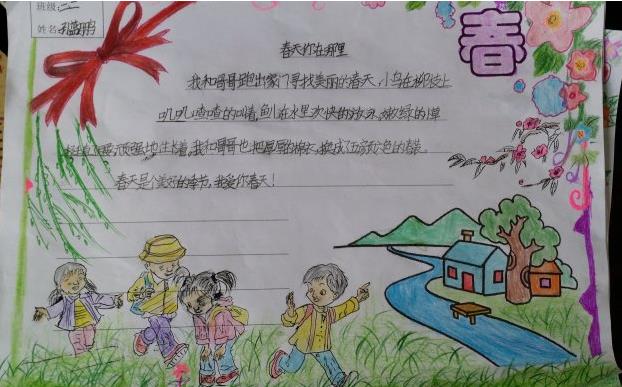 班级:二
姓名:
春
春天你在哪里
我和哥哥跑出家门寻找美丽的春天,小鸟在柳枝上
叽叽喳喳的唱,鱼儿在水里欢快的游泳,嫩绿的
顽强地生长着,我和哥哥也把厚厚的棉衣,换成了五颜六色的春装。
春天是个美好的季节,我爱你春天!